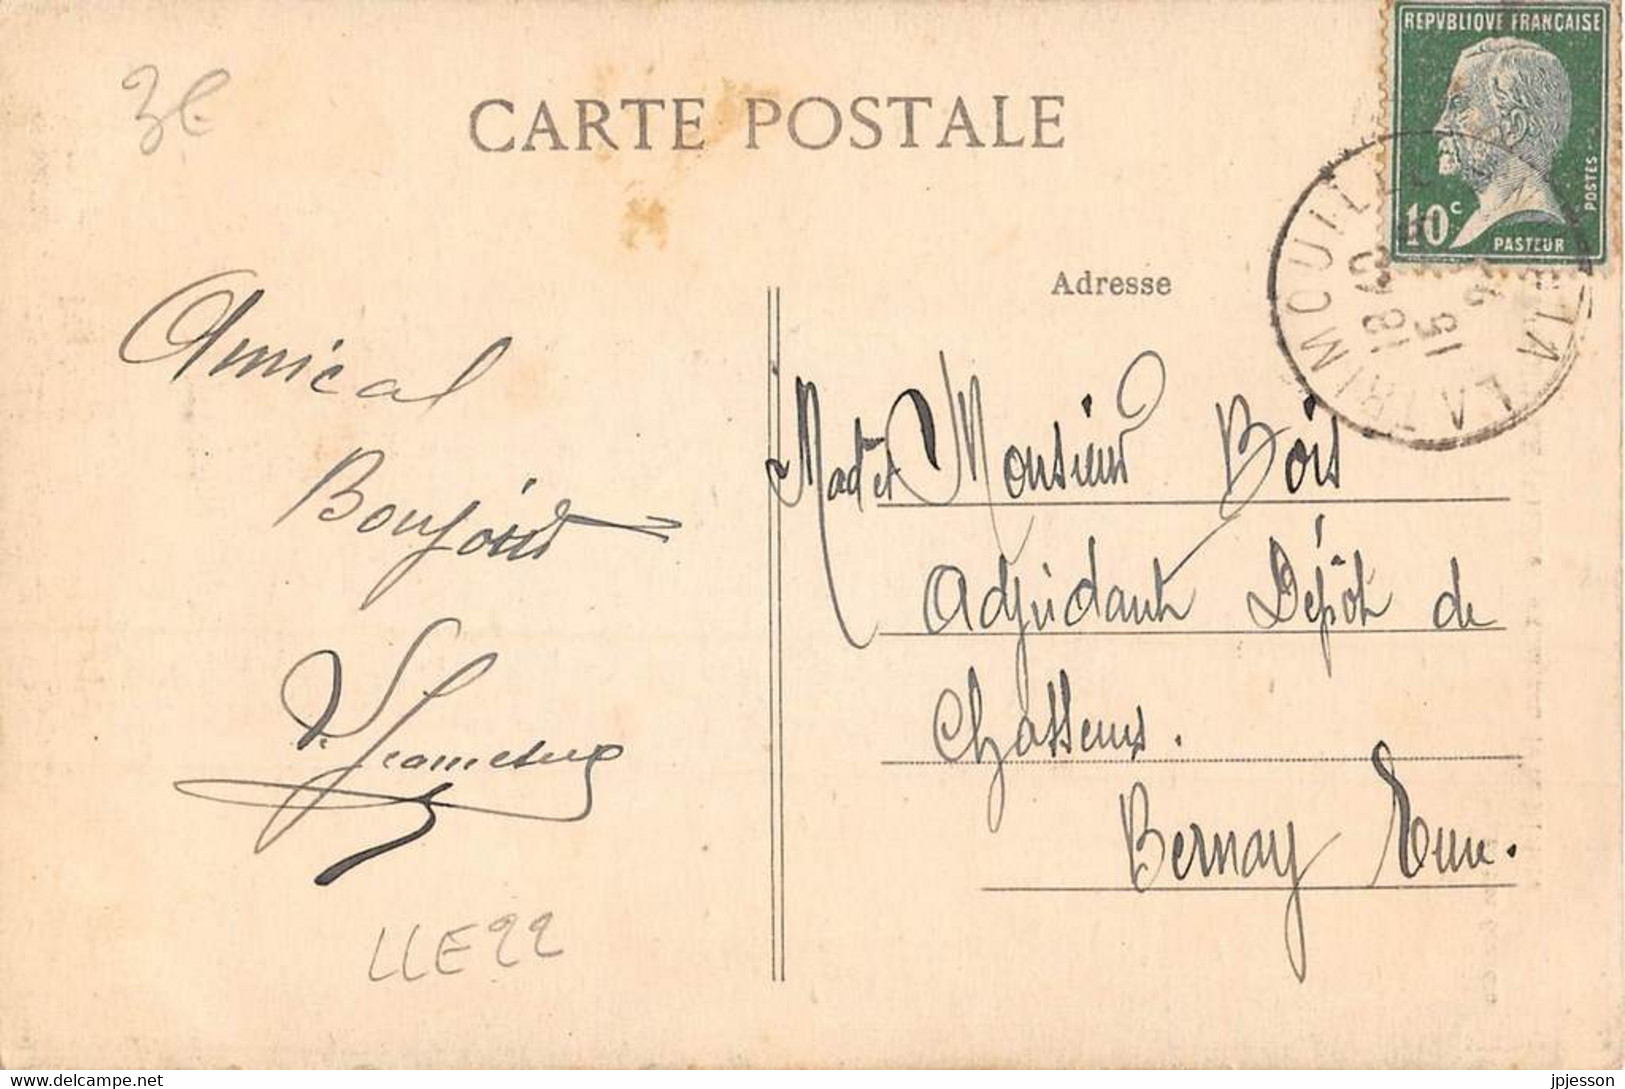 3€
CARTE POSTALE
REPVBLIQVE FRANCAISE
10c
POSTES
PASTEUR
LA TRIMOUILLE
18 40
16
Adresse
Amical
Bonjour
LLE22
Mad et Monsieur Bois
Adjudant Dépôt de
Chasseurs.
Bernay Eure.
www.delcampe.net
jpjesson